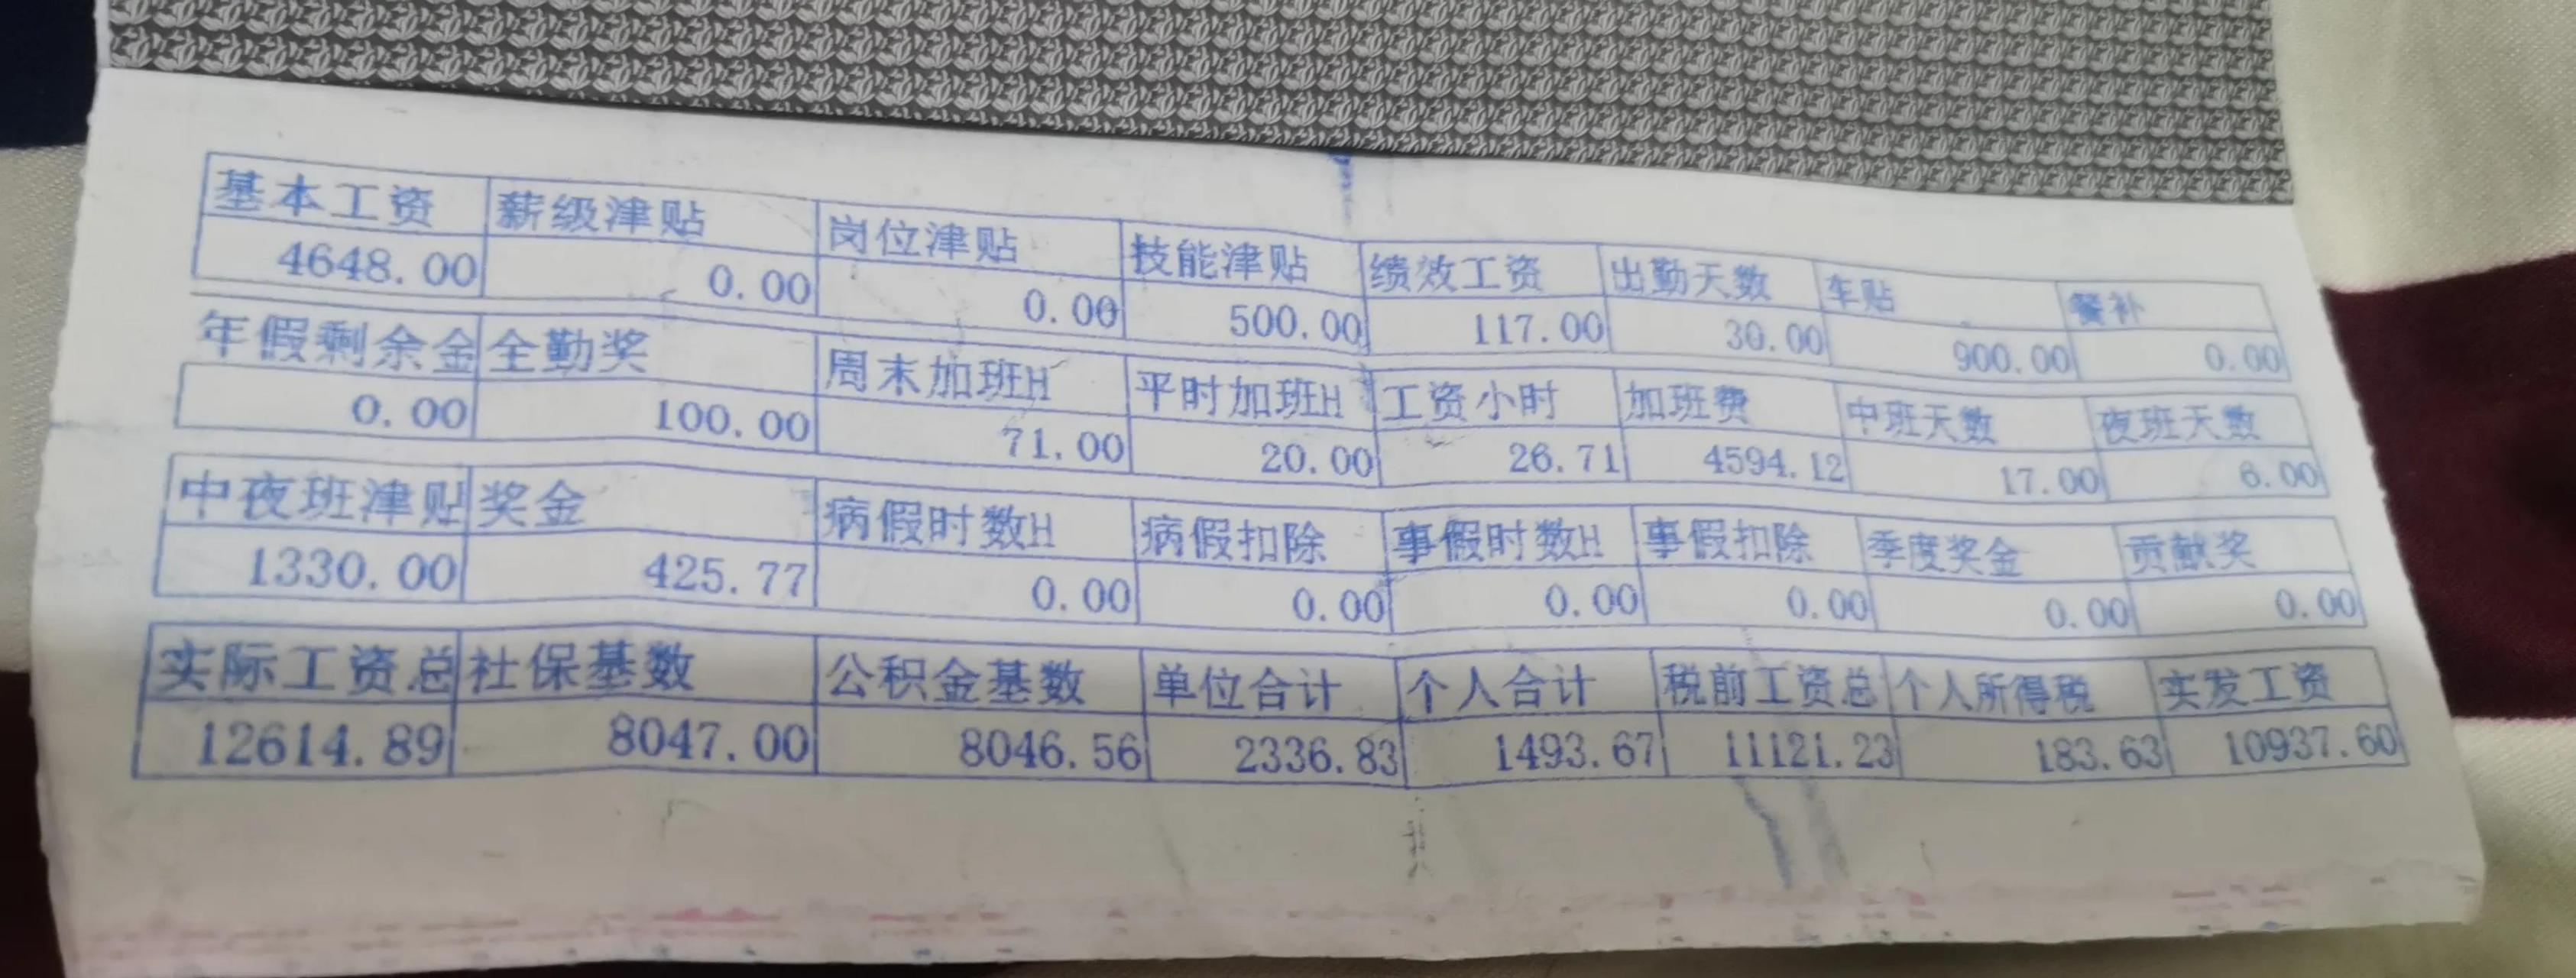 基本工资 薪级津贴 岗位津贴 技能津贴 绩效工资 出勤天数 车贴 餐补
4648.00 0.00 0.00 500.00 117.00 30.00 900.00 0.00
年假剩余金 全勤奖 周末加班H 平时加班H 工资小时 加班费 中班天数 夜班天数
0.00 100.00 71.00 20.00 26.71 4594.12 17.00 6.00
中夜班津贴 奖金 病假时数H 病假扣除 事假时数H 事假扣除 季度奖金 贡献奖
1330.00 425.77 0.00 0.00 0.00 0.00 0.00 0.00
实际工资总 社保基数 公积金基数 单位合计 个人合计 税前工资总 个人所得税 实发工资
12614.89 8047.00 8046.56 2336.83 1493.67 11121.23 183.63 10937.60